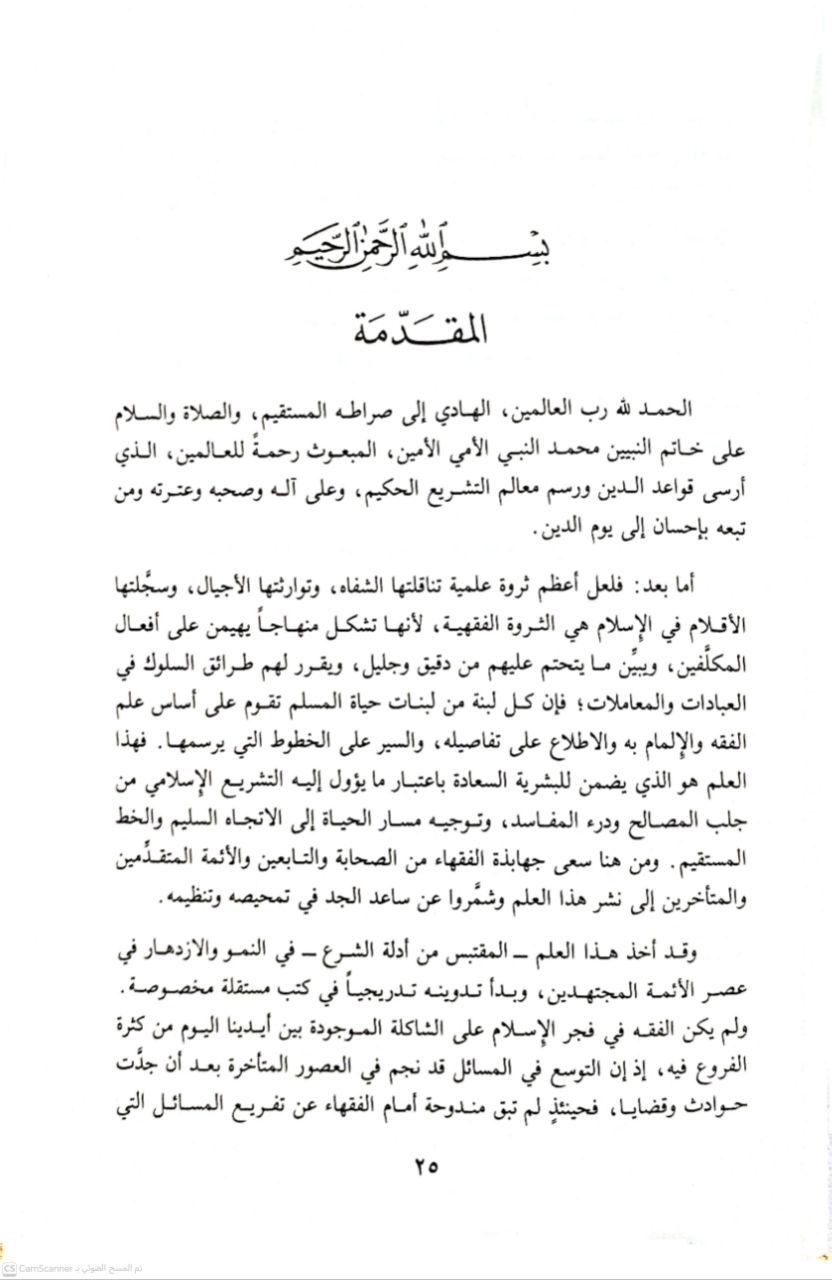 بسم الله الرحمن الرحيم
المقدّمة
الحمد لله رب العالمين، الهادي إلى صراطه المستقيم، والصلاة والسلام
على خاتم النبيين محمد النبي الأمي الأمين، المبعوث رحمةً للعالمين، الذي
أرسى قواعد الدين ورسم معالم التشريع الحكيم، وعلى آله وصحبه وعترته ومن
تبعه بإحسان إلى يوم الدين.
أما بعد: فلعل أعظم ثروة علمية تناقلتها الشفاه، وتوارثتها الأجيال، وسجَّلتها
الأقلام في الإسلام هي الثروة الفقهية، لأنها تشكل منهاجاً يهيمن على أفعال
المكلَّفين، ويبيِّن ما يتحتم عليهم من دقيق وجليل، ويقرر لهم طرائق السلوك في
العبادات والمعاملات؛ فإن كل لبنة من لبنات حياة المسلم تقوم على أساس علم
الفقه والإلمام به والاطلاع على تفاصيله، والسير على الخطوط التي يرسمها. فهذا
العلم هو الذي يضمن للبشرية السعادة باعتبار ما يؤول إليه التشريع الإسلامي من
جلب المصالح ودرء المفاسد، وتوجيه مسار الحياة إلى الاتجاه السليم والخط
المستقيم. ومن هنا سعى جهابذة الفقهاء من الصحابة والتابعين والأئمة المتقدِّمين
والمتأخرين إلى نشر هذا العلم وشمَّروا عن ساعد الجد في تمحيصه وتنظيمه.
وقد أخذ هذا العلم – المقتبس من أدلة الشرع – في النمو والازدهار في
عصر الأئمة المجتهدين، وبدأ تدوينه تدريجياً في كتب مستقلة مخصوصة.
ولم يكن الفقه في فجر الإسلام على الشاكلة الموجودة بين أيدينا اليوم من كثرة
الفروع فيه، إذ إن التوسع في المسائل قد نجم في العصور المتأخرة بعد أن جدَّت
حوادث وقضايا، فحينئذٍ لم تبق مندوحة أمام الفقهاء عن تفريع المسائل التي
٢٥
CS CamScanner تم المسح الضوئي بـ